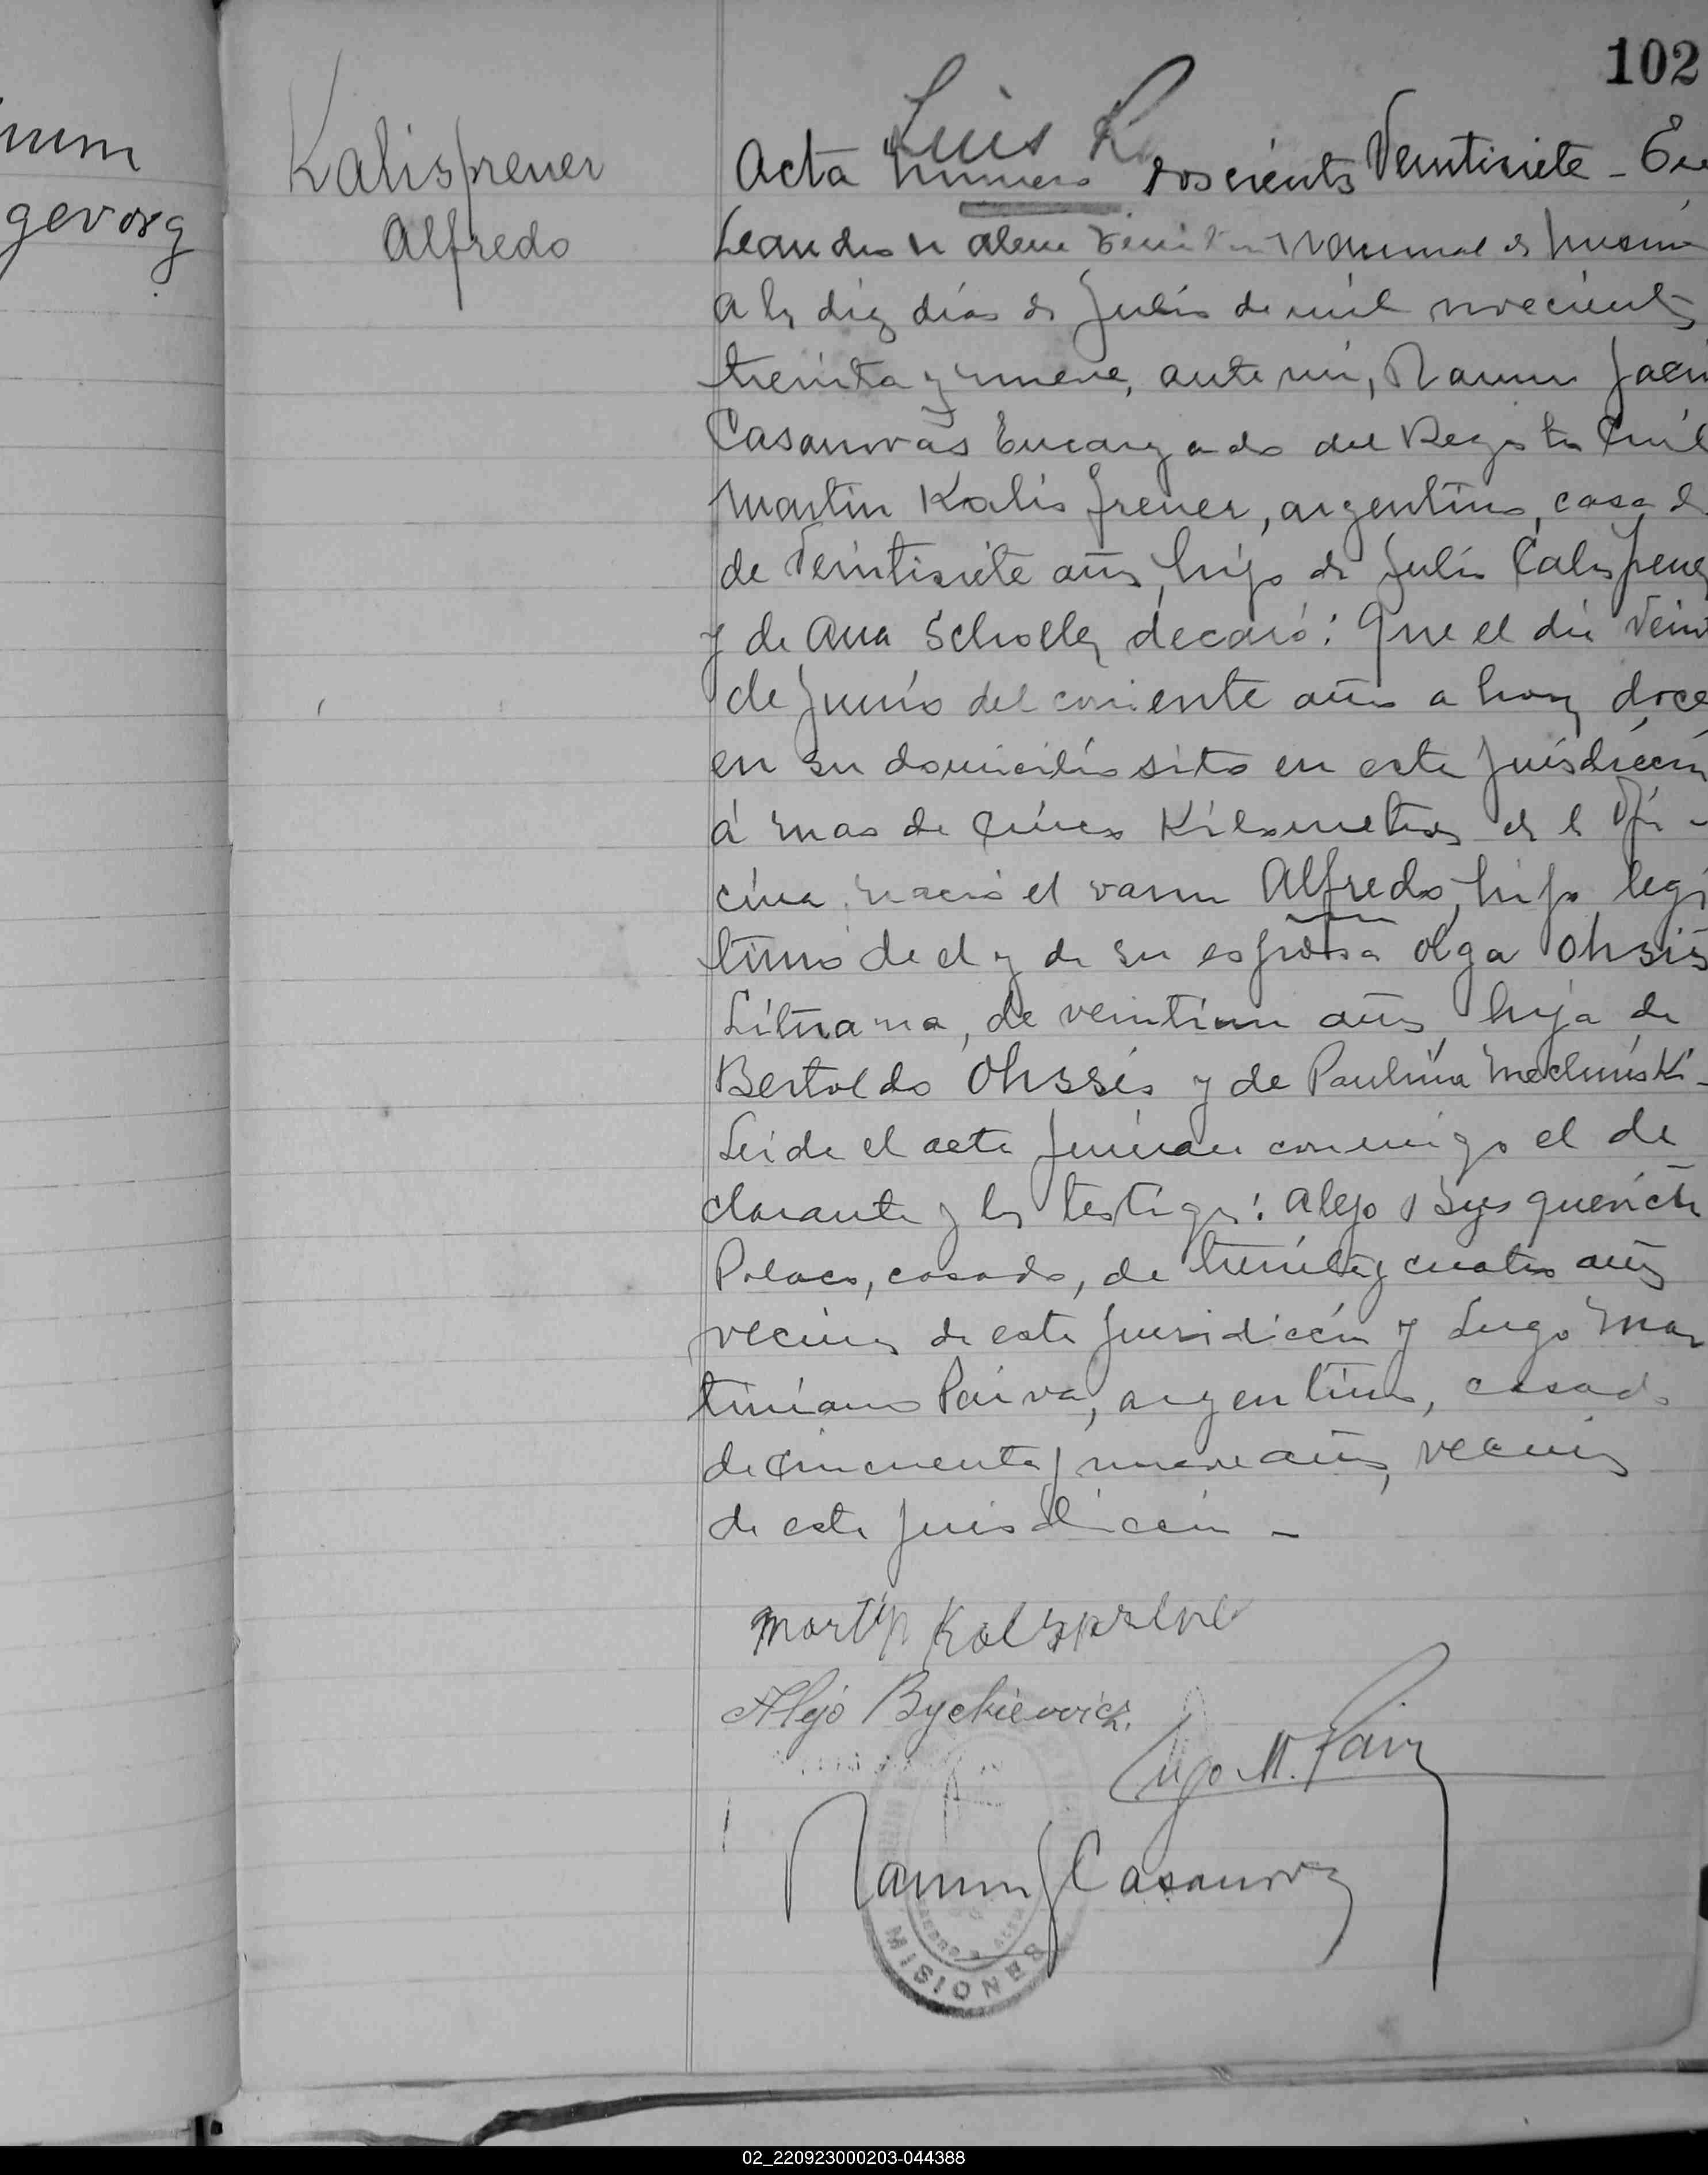 102
num
gevorg
Kalisprener
Alfredo
Luis
Acta numero doscients Veintisiete - En
Leandro N alem
a ls diez dias de Julio de mil novecients
treinta y nueve, ante mi, Ramon
Casanovas Encargado del Registro Civil
Martin Kalis prener, argentino, casado
de Veintisiete años, hijo de Julio Calisprener
y de Ana Scholler decaró: Que el dia Veint
de Junio del corriente año a hora doce
en su domicilio sito en esta jurisdiccion
á mas de Cinco Kilometros de l Ofi-
cina nació el varon Alfredo, hijo legi
timo de el y de su esposa Olga Ohsis
Lituana, de veintiun años, hija de
Bertoldo Ohssis y de Paulina Mechinski-
Leida el acta firman conmigo el de
clarante y ls testigs: Alejo Bysquerich
Polaco, casado, de treinta y cuatro años
vecino de esta jurisdiccion y Lugo Mar
tiniano Paiva, argentino, casado
de Cincuenta y nueve años, vecino
de esta jurisdiccion -
Martin
Alejo Byckievvicz.
Lugo M. Paiva
Ramon J Casanovas
MISIONES
02_220923000203-044388